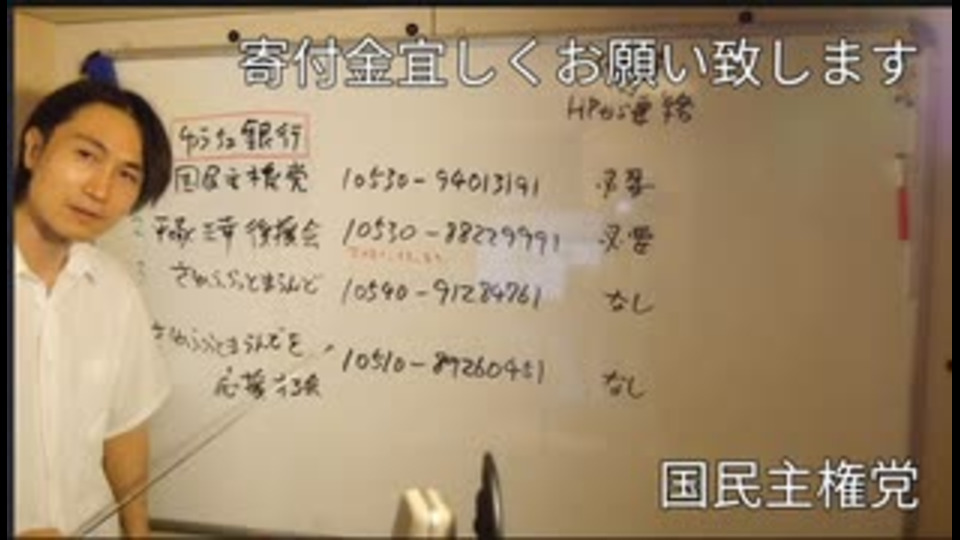 寄付金宜しくお願い致します
HPから連絡
ゆうちょ銀行
国民主権党 10530-94013191 必要
平塚正幸後援会 10530-88229991 必要
さゆふらっとまうんど 10540-91284761 なし
さゆふらっとまうんどを 10510-89260451
応援する会 なし
国民主権党